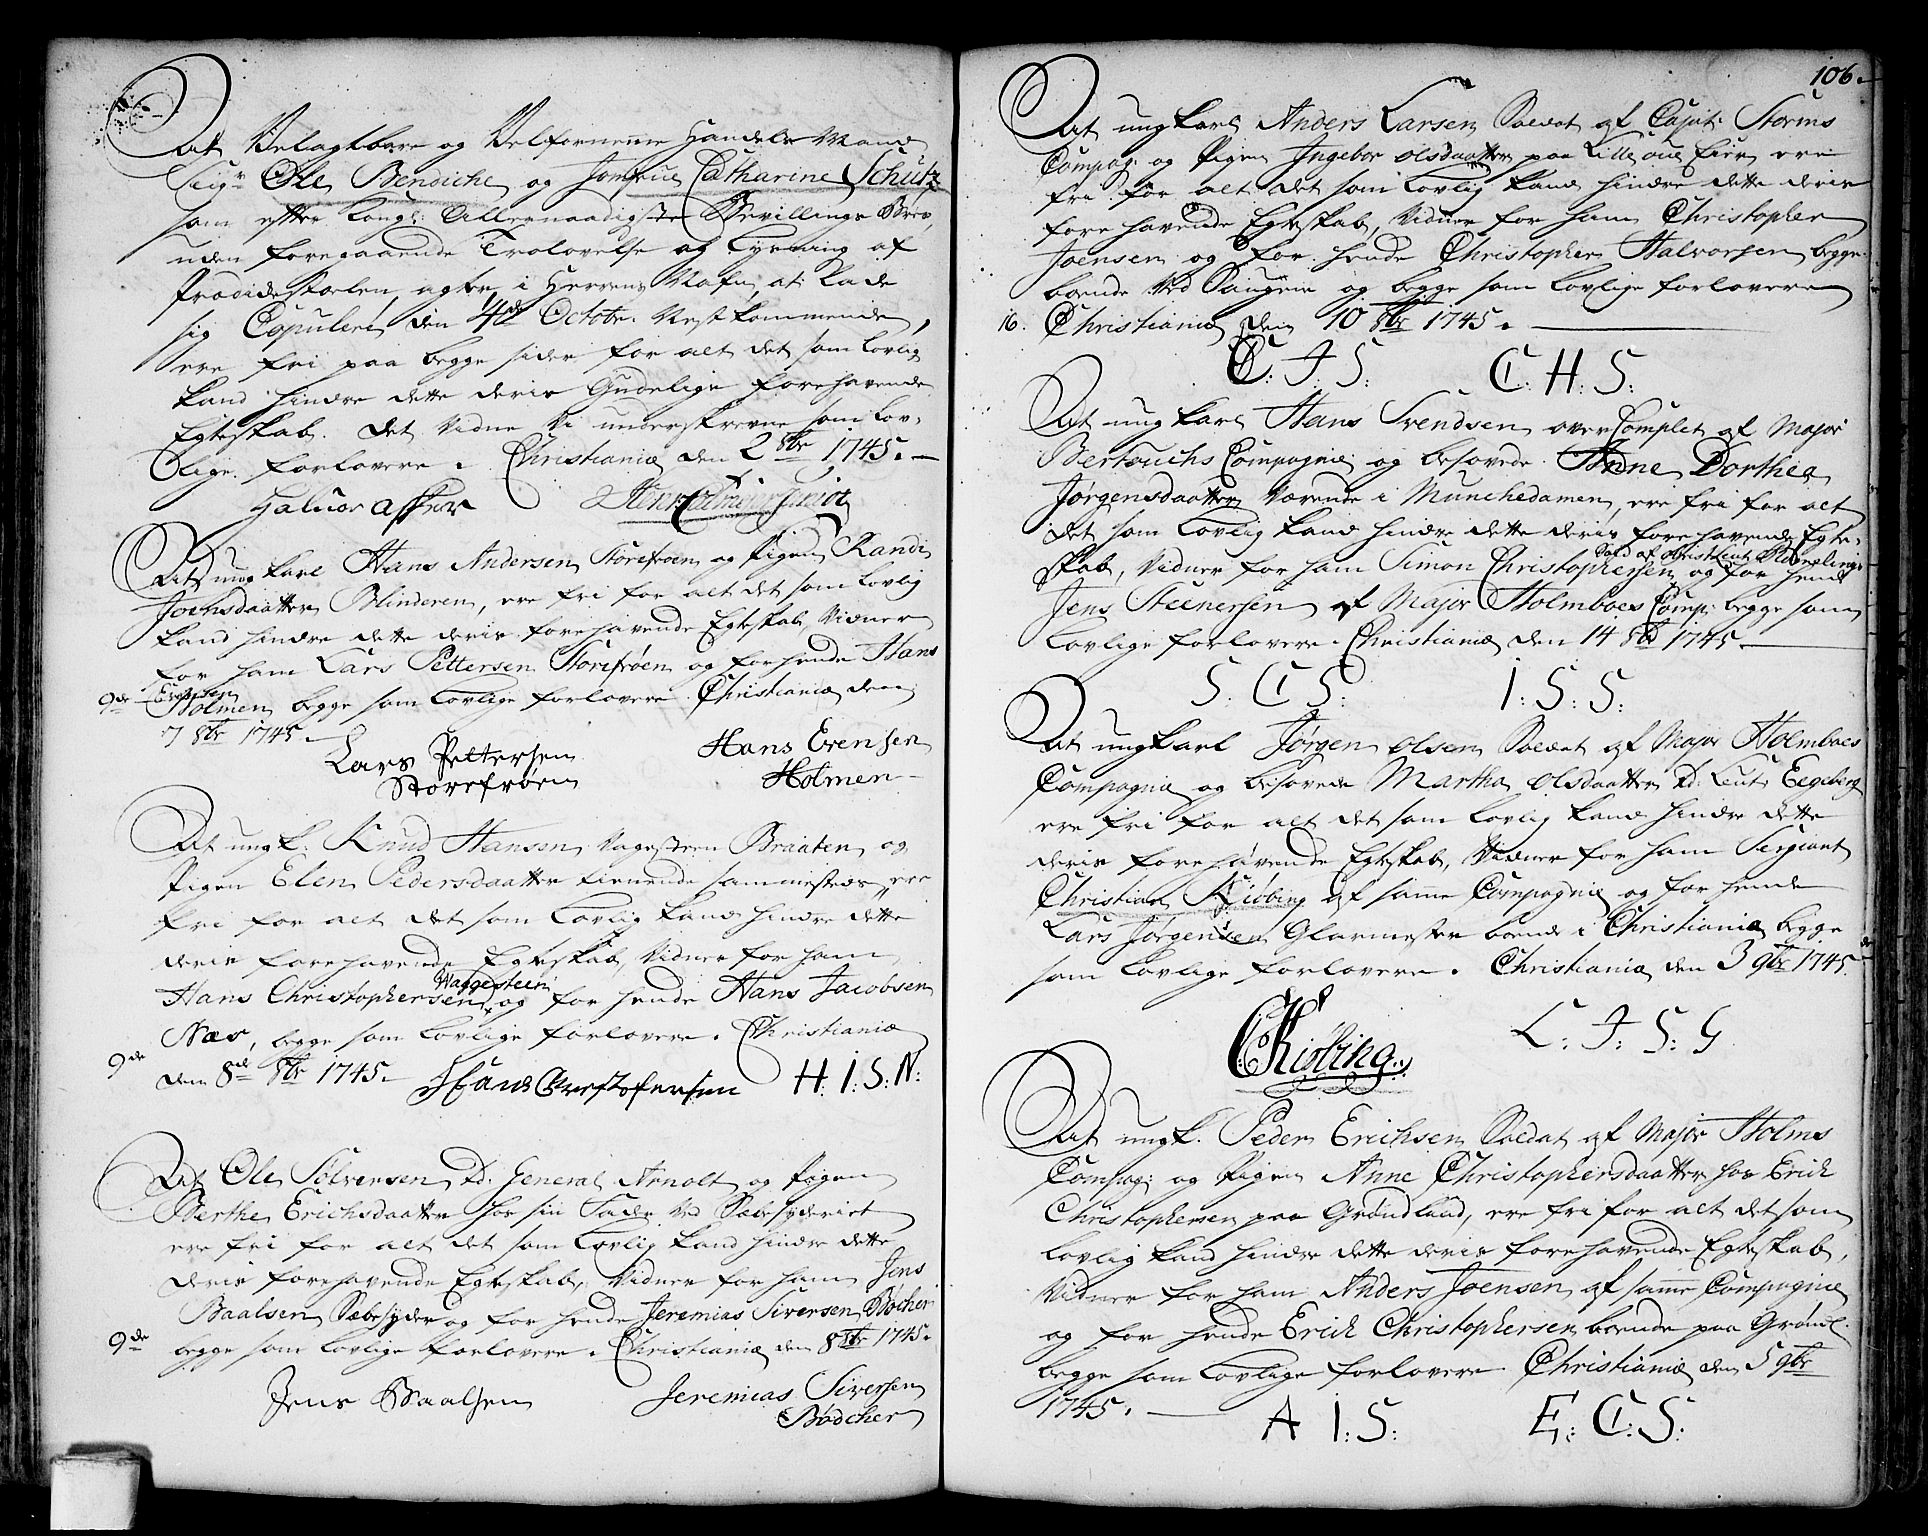 At Velagtbare og Velfornemme Handels Mand
Sigr Ole Bendiche og Jomfrue Catharine Schütz
som efter Kongl: Allernaadigste Bevillings Brev,
uden foregaaende Trolovelse og Lysning af
Prædickestoelen, agter i Herrens Nafn, at Lade
sig Copulere den 4de Octobr. Nest kommende,
ere fri paa begge sider for alt det som Lovlig
kand hindre dette deris Gudelige forehavende
Egteskab. Det Vidne Vi underskrevne som Lov-
lige forlovere. Christiania den 2 8br 1745. —
Haluor Asker
At ung karl Hans Andersen Storefroen og Pigen Randi
Joensdaatter Blinderen, ere fri for alt det som Lovlig
kand hindre dette deris forehavende Egteskab, Vidner
for ham Lars Pettersen Storefrøen og for hende Hans
Evensen
9de Holmen begge som Lovlige forlovere. Christiania den
7 8br 1745. —
Lars Pettersen Hans Evensen
Storefrøen Holmen —
At ung k. Knud Hansen Vagesteen Braaten og
Pigen Elen Pedersdaatter tienende sammesteds, ere
fri for alt det som Lovlig kand hindre dette
deris forehavende Egteskab, Vidner for ham
Waggesteen
Hans Christophersen og for hende Hans Jacobsen
Næs, begge som Lovlige forlovere. Christiania
9de den 8de 8br 1745. Hans Chrestofersen H. I. S. N:
At Ole Sølvensen td. General Arnolt og Pigen
Berthe Erichsdaatter hos sin Fader ved Sæbesyderiet
ere fri for alt det som Lovlig kand hindre dette
deris forehavende Egteskab, Vidner for ham Jens
Baalsen Sæbesyder og for hende Jeremias Siversen Bøcher
9de begge som Lovlige forlovere. Christiania den 8de 8br 1745.
Jens Baalsen Jeremias Siversen
Bødcher
106.
At ung karl Anders Larsen Soldat af Capit: Storms
Compag: og Pigen Ingebor Olsdaatter paa Lille Eier ere
fri for alt det som Lovlig kand hindre dette deris
fore havende Egteskab, Vidner for ham Christopher
Joensen og for hende Christopher Halvorsen begge
boende Ved Saugene og begge som Lovlige forlovere
16. Christiania den 10 8br 1745. —
C. J. S: C: H: S:
At ung karl Hans Svendsen over Complet af Major
Bertouchs Compagnie og besovede Anne Dorthea
Jørgensdaatter Værende i Munchedamen, ere fri for alt
det som Lovlig kand hindre dette deris forehavende Egte-
skab, Vidner for ham Simon Christophersen og for hende
Jens Steenersen af Major Holmboes Comp: begge som
Lovlige forlovere. Christiania den 14 8br 1745. —
S: C S: I: S: S:
At ung karl Jørgen Olsen Soldat af Major Holmboes
Compagnie og besovede Martha Olsdaatter td. Leut: Eegeberg
ere fri for alt det som Lovlig kand hindre dette
deris forehavende Egteskab, Vidner for ham Sergiant
Christian Kiøbing af samme Compagnie og for hende
Lars Jørgensen Glarmester boende i Christiania begge
som Lovlige forlovere. Christiania den 3 9br 1745.
CKiøbing. L: J: S: G
At ung k. Peder Erichsen Soldat af Major Holms
Compag: og Pigen Anne Christophersdaatter hos Erich
Christophersen paa Grønland, ere fri for alt det som
Lovlig kand hindre dette deris forehavende Egteskab,
Vidner for ham Anders Joensen af samme Compagnie
og for hende Erich Christophersen boende paa Grønl:
begge som Lovlige forlovere. Christiania den 5 9br
1745. — A I: S: E: C: S: